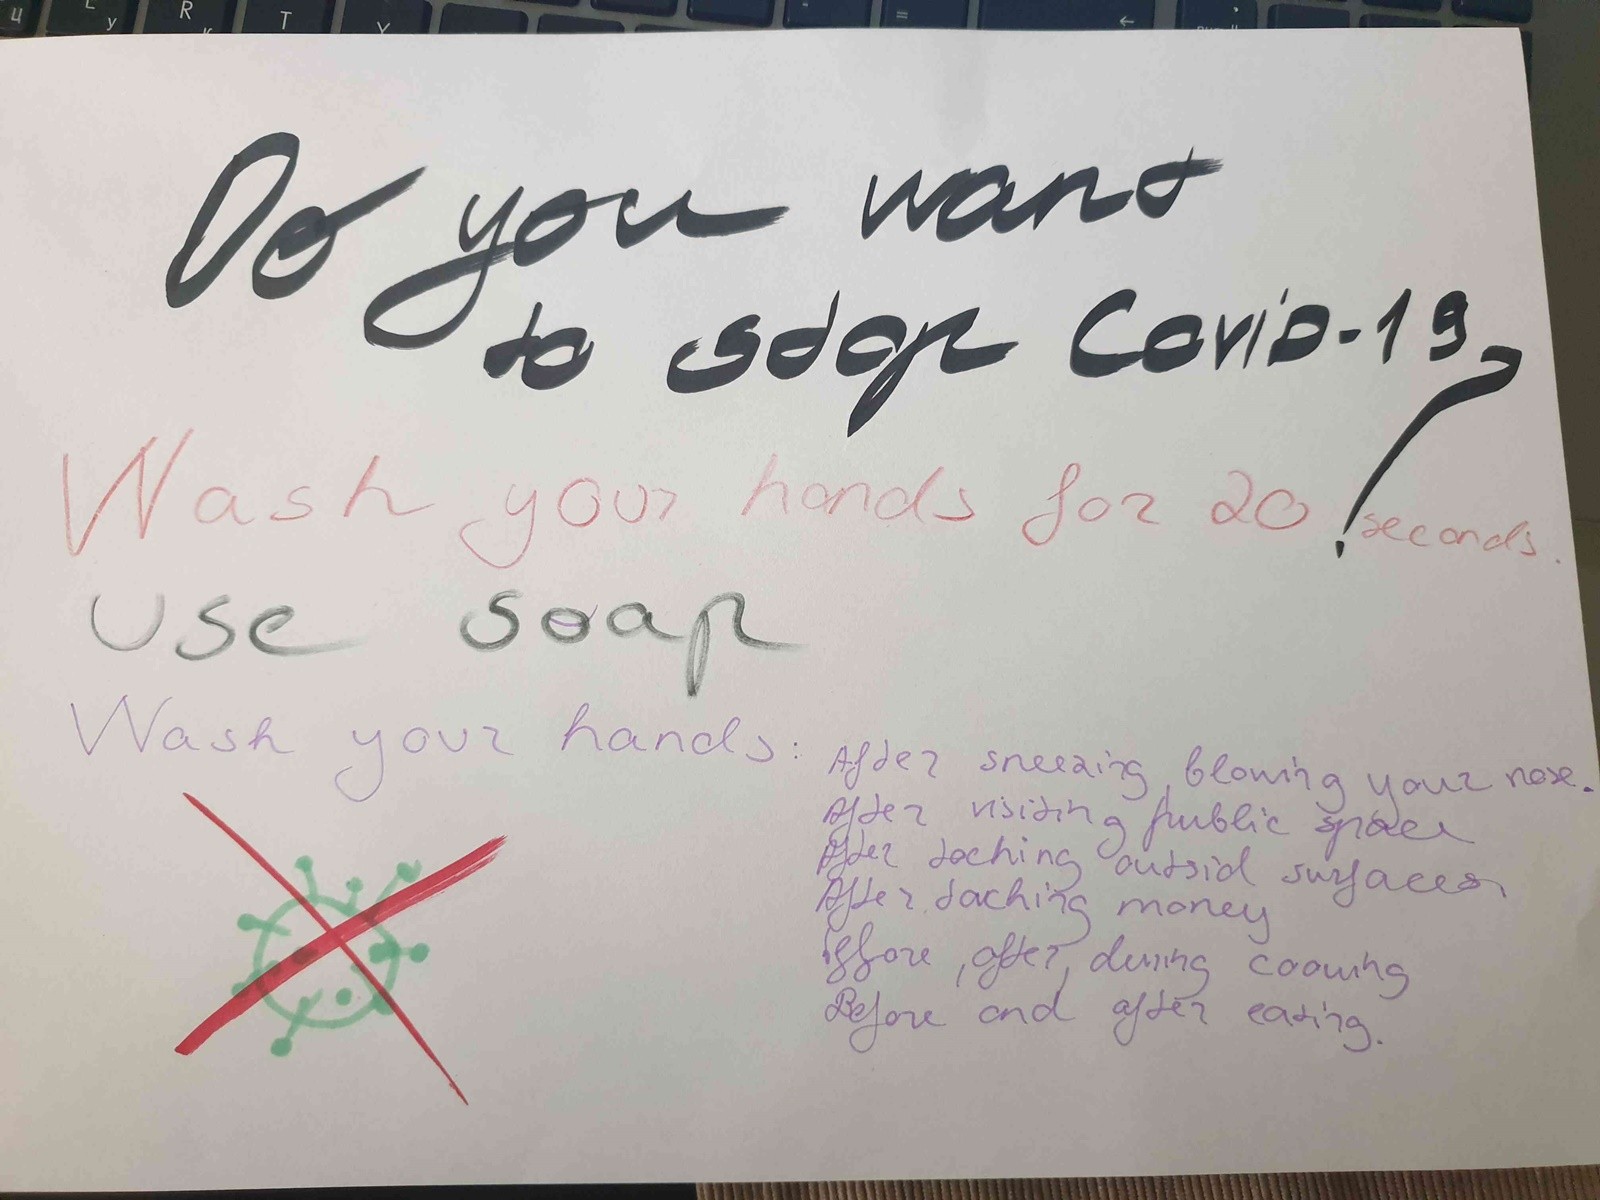 ц
у
R
к
T
Y
-
=
←
Do you want
to stop Covid-19?
Wash your hands for 20 seconds.
Use soap
Wash your hands:
After sneezing, blowing your nose.
After visiting public space
After toching outsid surfaces
After taching money
before, after, during coowing
Before and after eating.